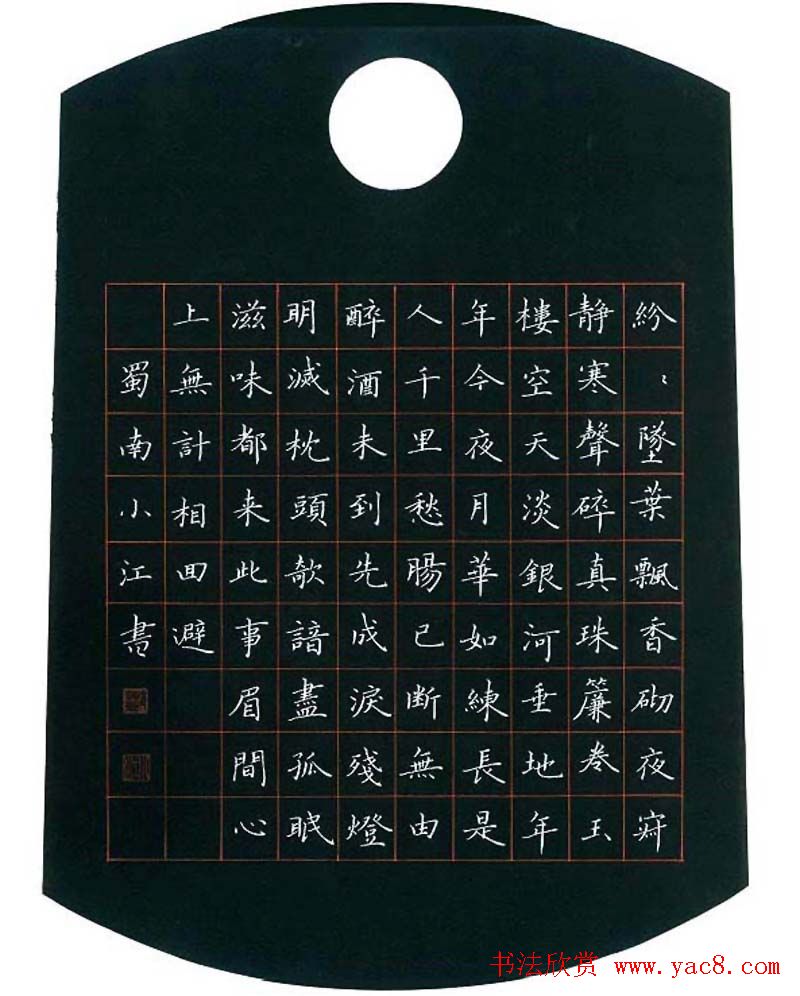 紛〻墜葉飄香砌夜寂
靜寒聲碎真珠簾卷玉
樓空天淡銀河垂地年
年今夜月華如練長是
人千里愁腸已斷無由
醉酒未到先成淚殘燈
明滅枕頭欹諳盡孤眠
滋味都来此事眉間心
上無計相回避
蜀南小江書
书法欣赏 www.yac8.com